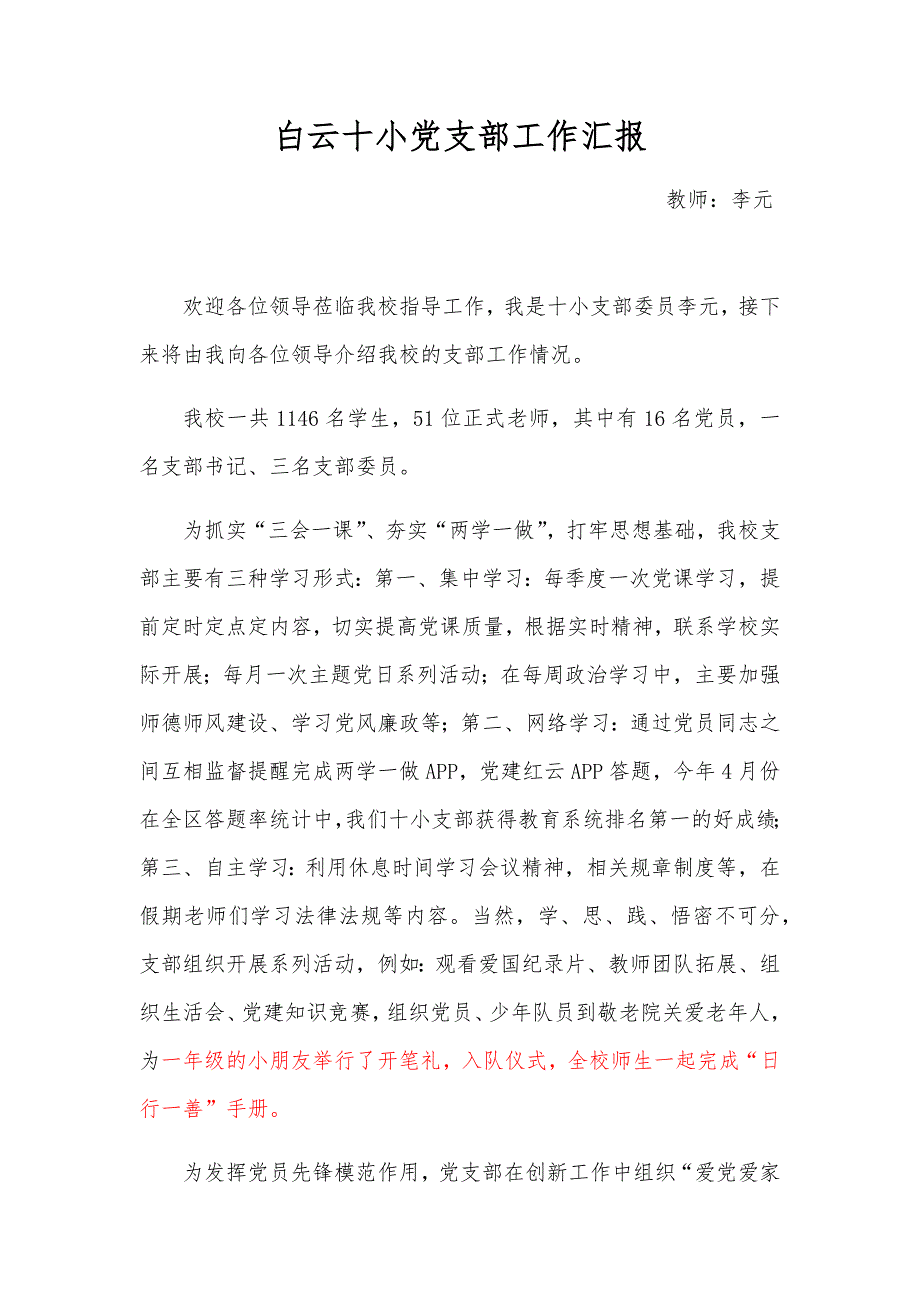 白云十小党支部工作汇报
教师：李元
欢迎各位领导莅临我校指导工作，我是十小支部委员李元，接下
来将由我向各位领导介绍我校的支部工作情况。
我校一共 1146 名学生，51 位正式老师，其中有 16 名党员，一
名支部书记、三名支部委员。
为抓实“三会一课”、夯实“两学一做”，打牢思想基础，我校支
部主要有三种学习形式：第一、集中学习：每季度一次党课学习，提
前定时定点定内容，切实提高党课质量，根据实时精神，联系学校实
际开展；每月一次主题党日系列活动；在每周政治学习中，主要加强
师德师风建设、学习党风廉政等；第二、网络学习：通过党员同志之
间互相监督提醒完成两学一做 APP，党建红云 APP 答题，今年 4 月份
在全区答题率统计中，我们十小支部获得教育系统排名第一的好成绩；
第三、自主学习：利用休息时间学习会议精神，相关规章制度等，在
假期老师们学习法律法规等内容。当然，学、思、践、悟密不可分，
支部组织开展系列活动，例如：观看爱国纪录片、教师团队拓展、组
织生活会、党建知识竞赛，组织党员、少年队员到敬老院关爱老年人，
为一年级的小朋友举行了开笔礼，入队仪式，全校师生一起完成“日
行一善”手册。
为发挥党员先锋模范作用，党支部在创新工作中组织“爱党爱家